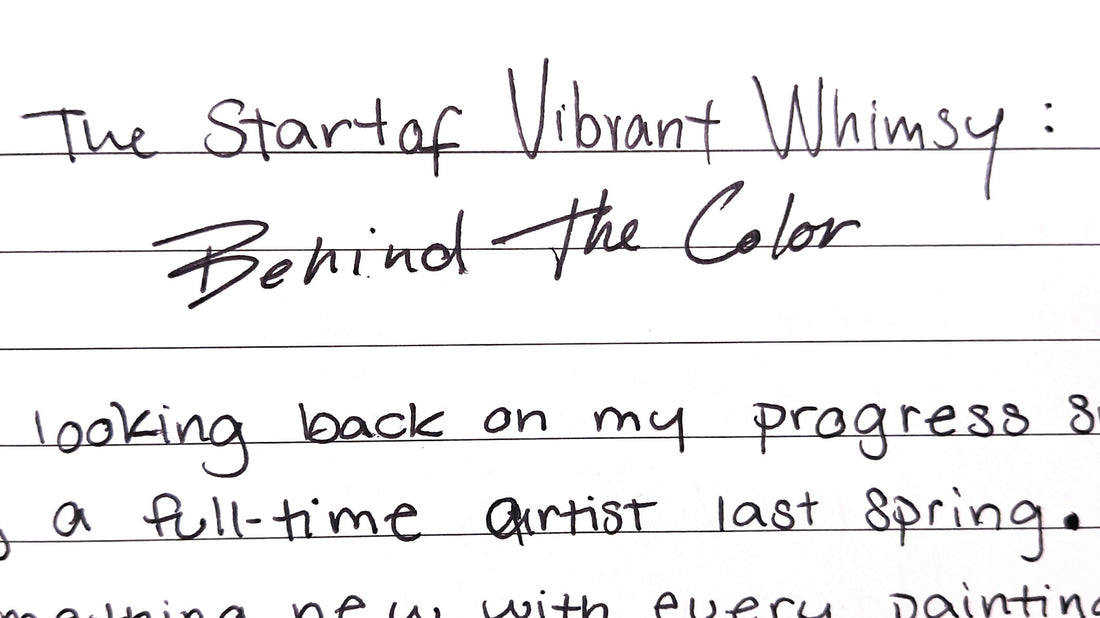 The Start of Vibrant Whimsy:
Behind the Color
looking back on my progress
a full-time artist last spring.
new with every